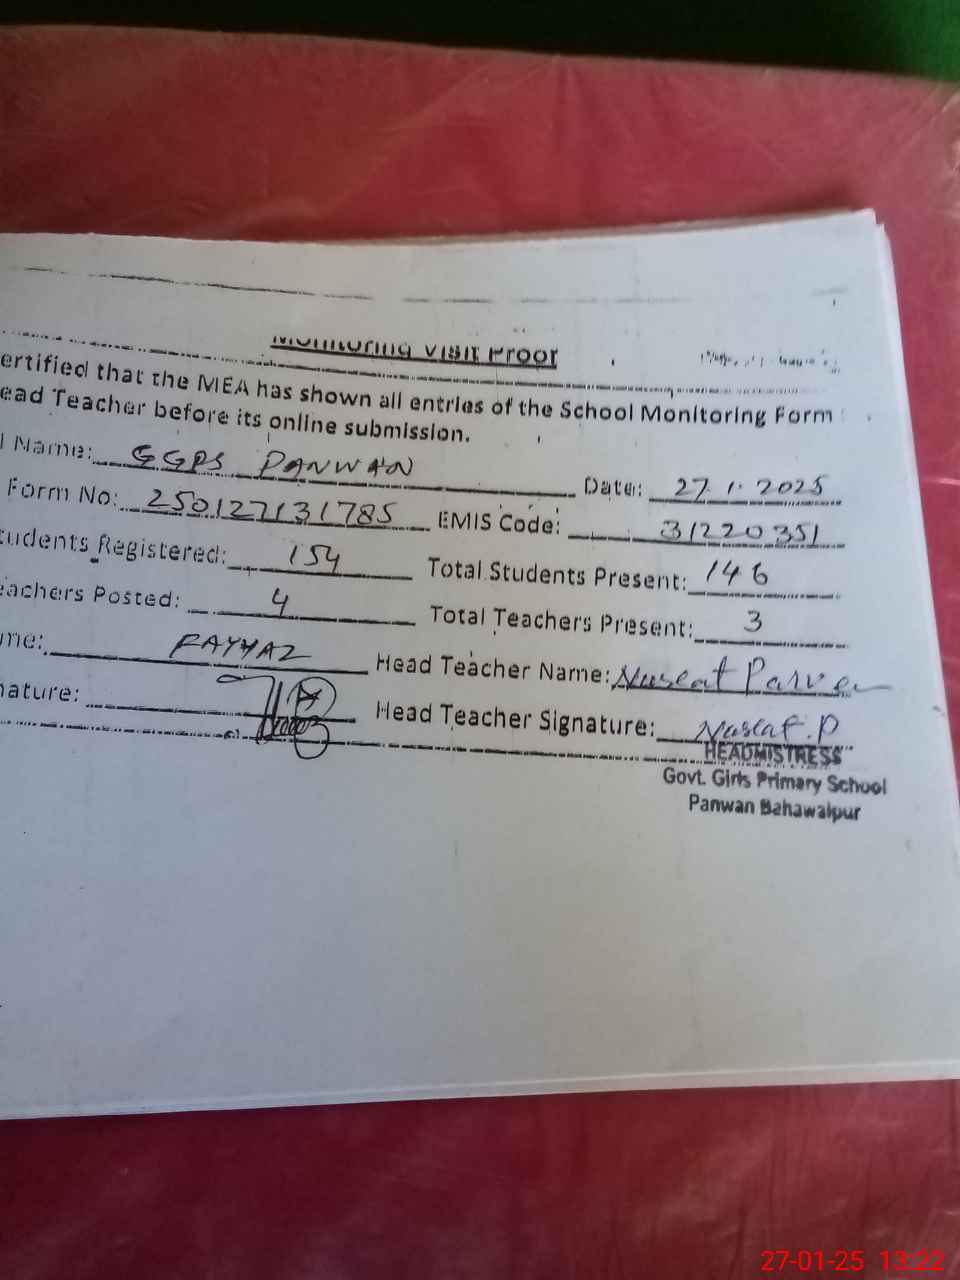 Monitoring Visit Proof
ertified that the MEA has shown all entries of the School Monitoring Form
ead Teacher before its online submission.
l Name: GGPS PANWAN Date: 27.1.2025
Form No: 250127131785 EMIS Code: 31220351
tudents Registered: 154 Total Students Present: 146
eachers Posted: 4 Total Teachers Present: 3
me: FAYYAZ Head Teacher Name: Nusrat Parveen
nature: Head Teacher Signature: Nusrat.P
HEADMISTRESS
Govt. Girls Primary School
Panwan Bahawalpur
27-01-25 13:22